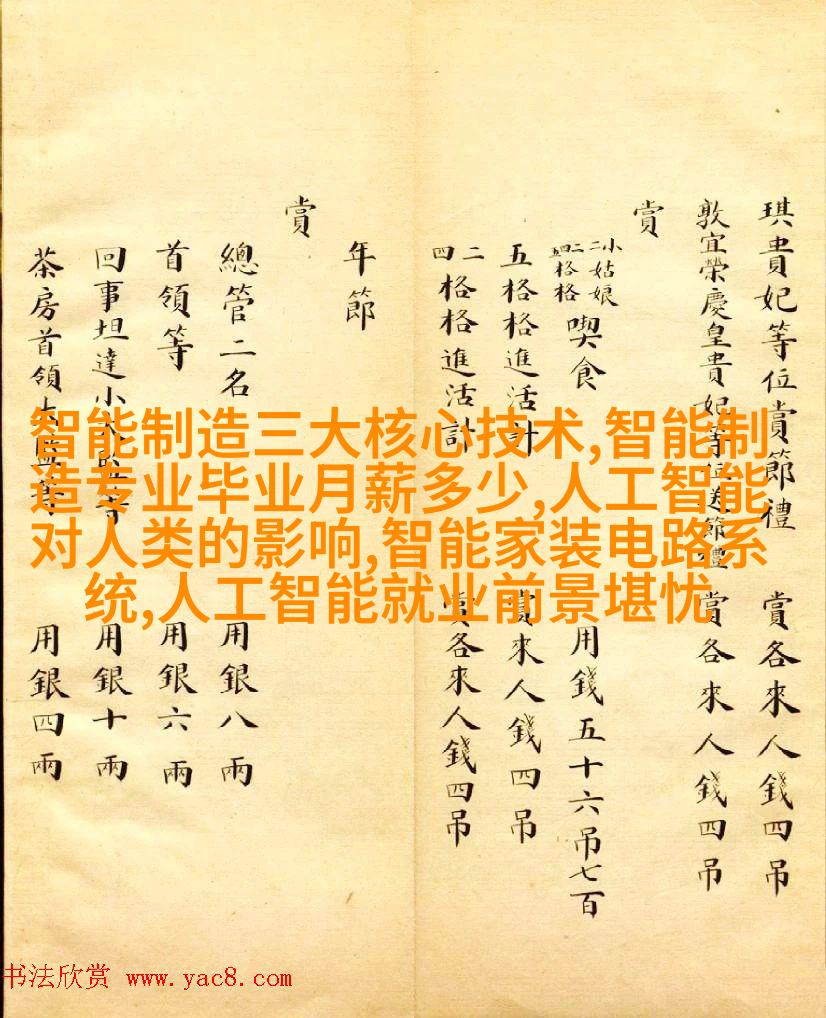 琪貴妃等位賞節禮 賞各來人錢四吊
敦宜榮慶皇貴妃等位送節禮 賞各來人錢四吊
賞
小姑娘 格格 喫食 用錢五十六吊七百
五格格進活計 賞來人錢四吊
二四格格進活計 賞各來人錢四吊
年節
賞
總管二名 用銀八兩
首領等 用銀六兩
回事坦達小太監等 用銀十兩
茶房首領太監等 用銀四兩
智能制造三大核心技术,智能制
造专业毕业月薪多少,人工智能
对人类的影响,智能家装电路系
统,人工智能就业前景堪忧
书法欣赏 www.yac8.com